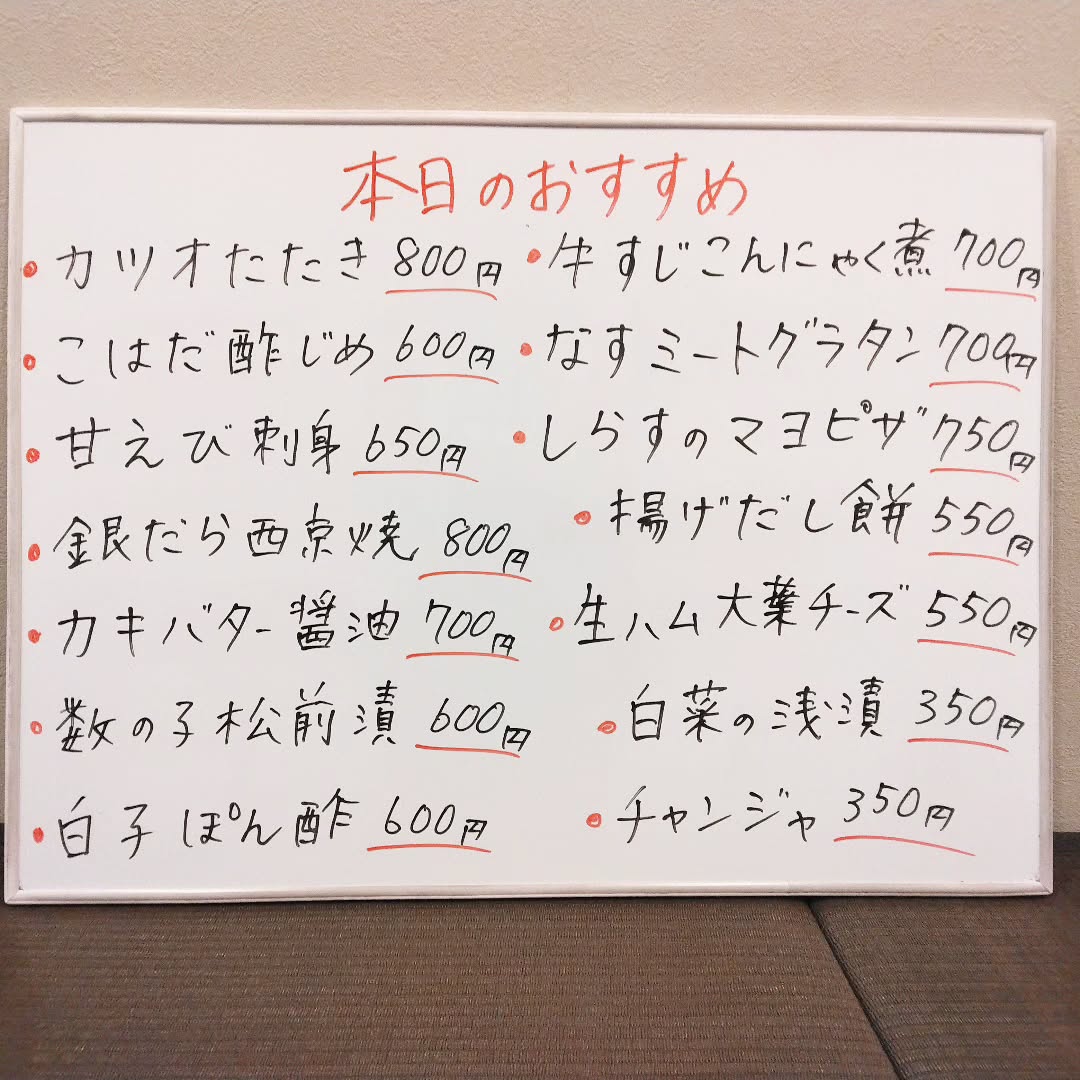 本日のおすすめ
・カツオたたき 800円
・こはだ酢じめ 600円
・甘えび刺身 650円
・銀だら西京焼 800円
・カキバター醤油 700円
・数の子松前漬 600円
・白子ぽん酢 600円
・牛すじこんにゃく煮 700円
・なすミートグラタン 700円
・しらすのマヨピザ 750円
・揚げだし餅 550円
・生ハム大葉チーズ 550円
・白菜の浅漬 350円
・チャンジャ 350円